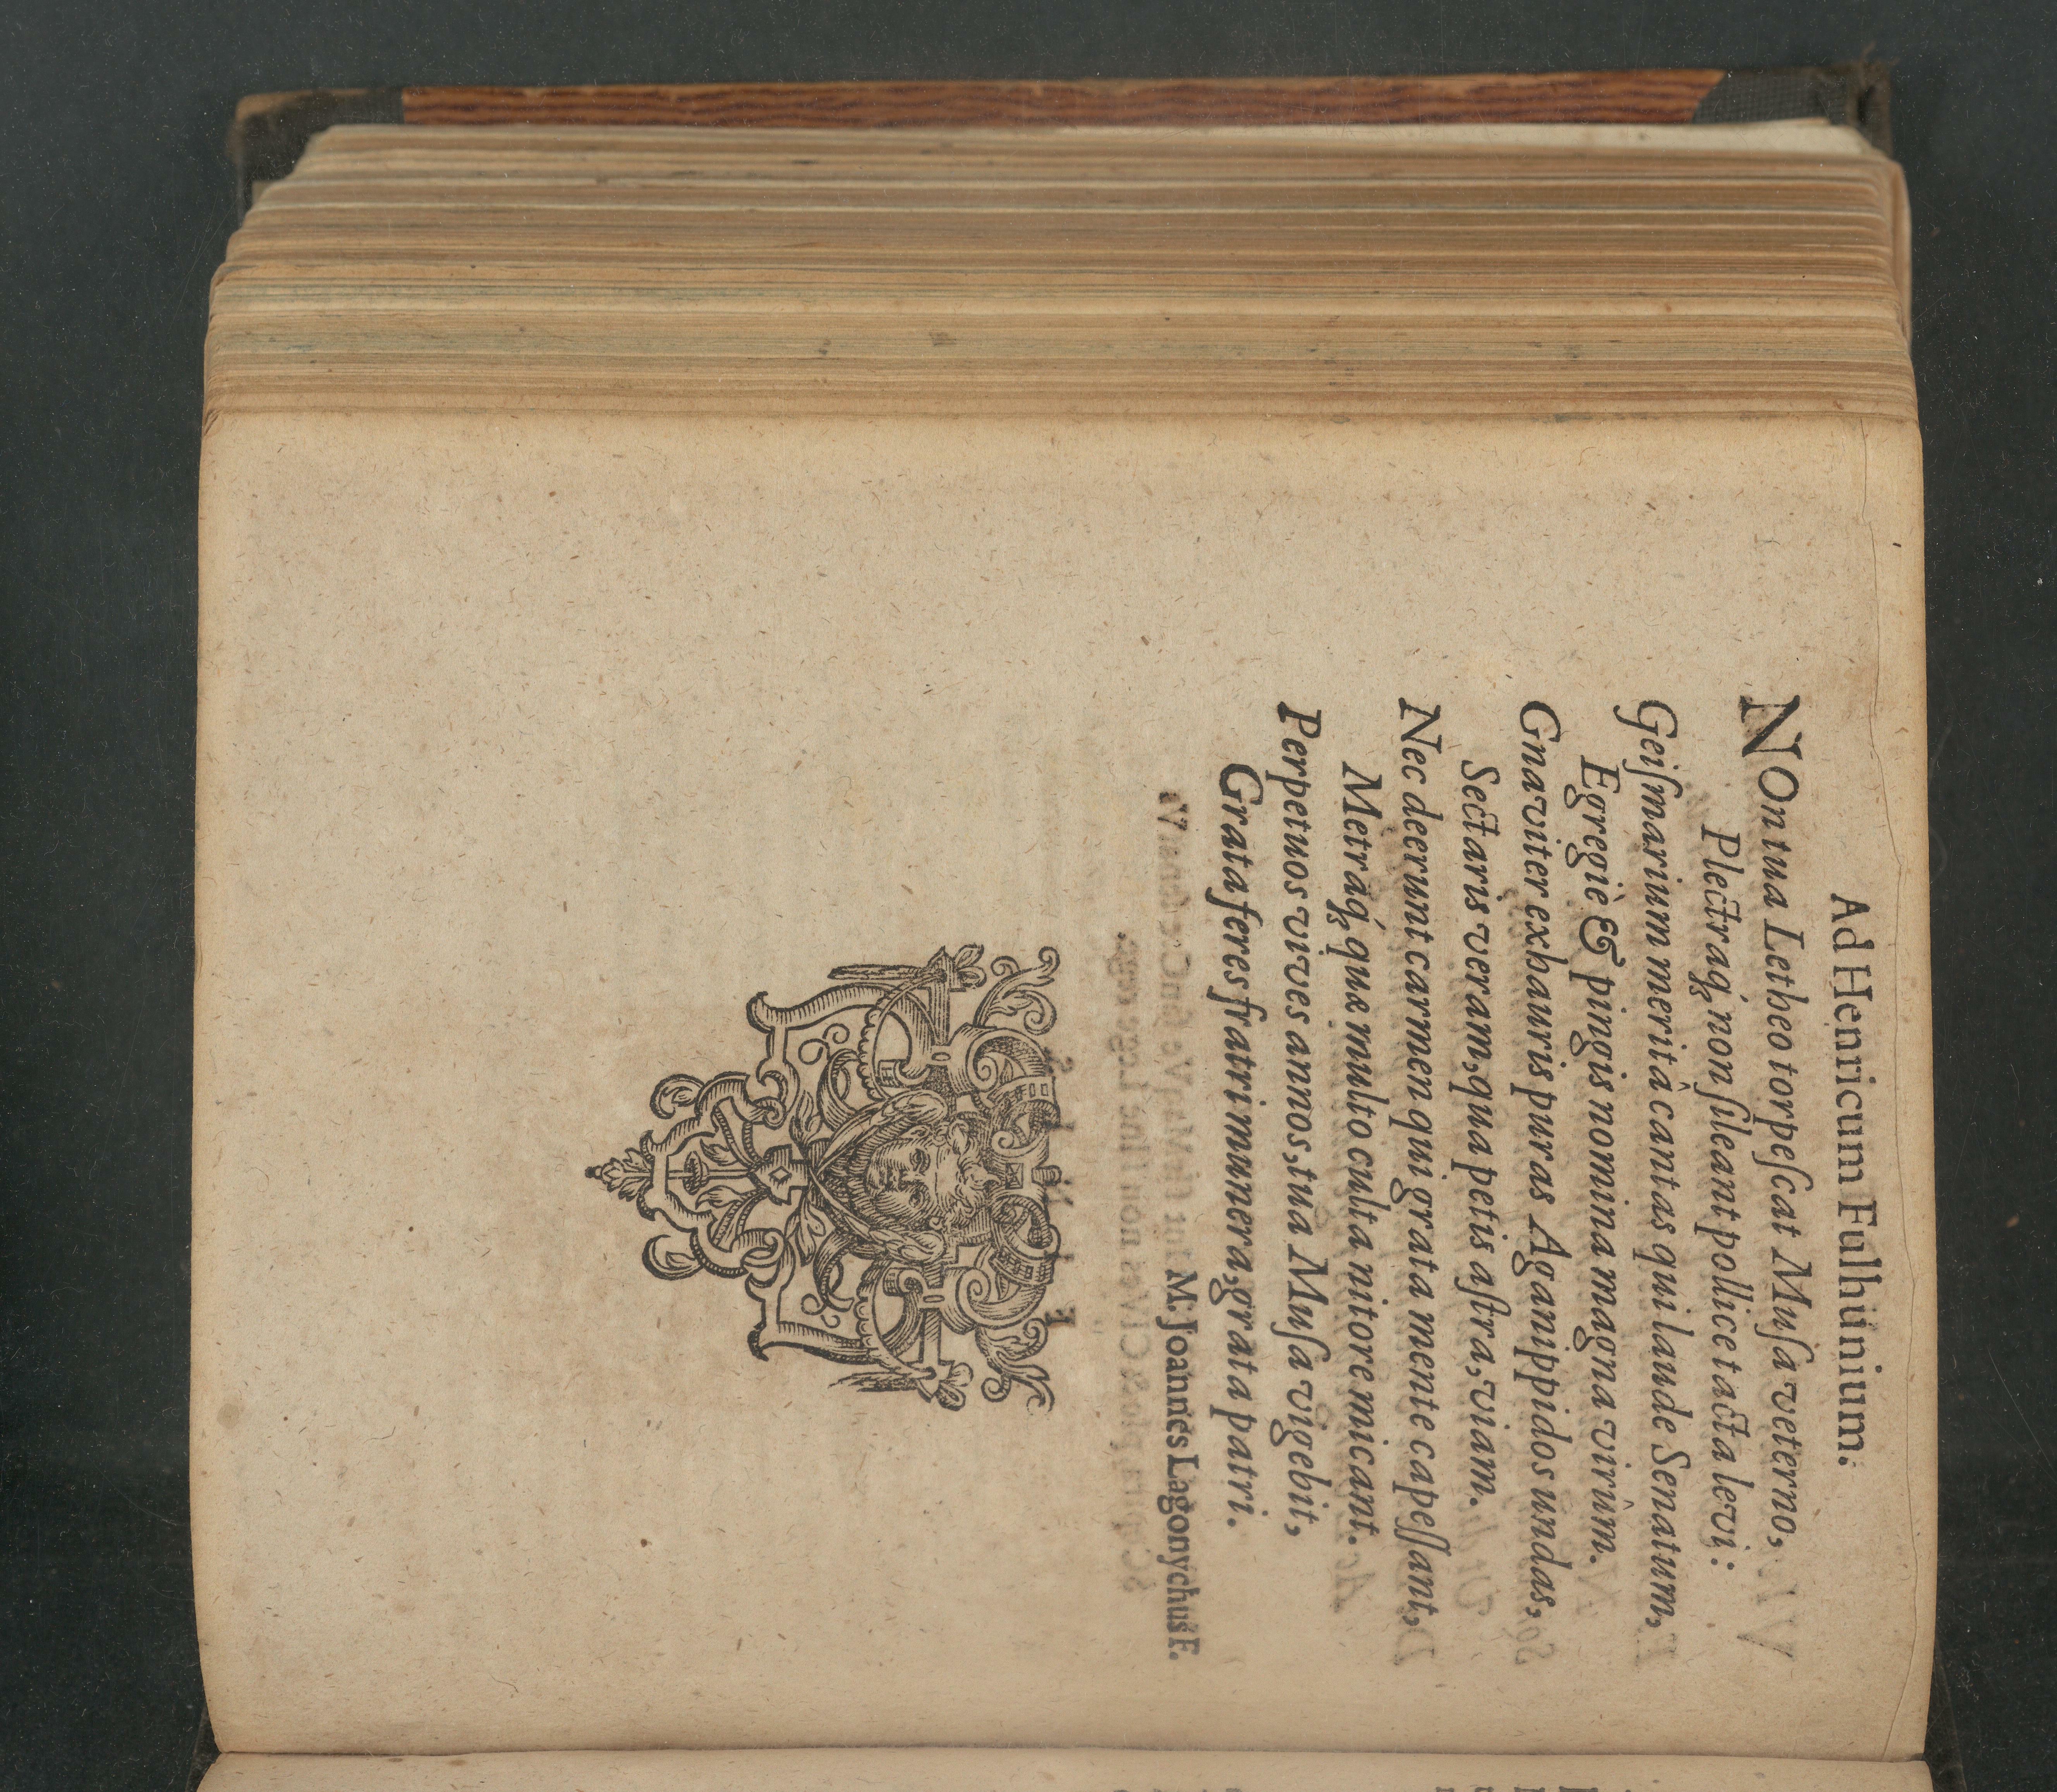 Ad Henricum Fulhünium.
NOn tua Letheo torpeſcat Muſa veterno,
Plectraq́; non ſileant pollice tacta levi:
Geiſmarium meritò cantas qui laude Senatum,
Egregiè & pingis nomina magna virûm.
Gnaviter exhauris puras Aganippidos undas,
Sectaris veram, qua petis aſtra, viam.
Nec deerunt carmen qui grata mente capeſſant,
Metraq́; quæ multo culta nitore micant.
Perpetuos vives annos, tua Muſa vigebit,
Grata feres fratri munera, grata patri.
M. Joannes Lagonychus F.